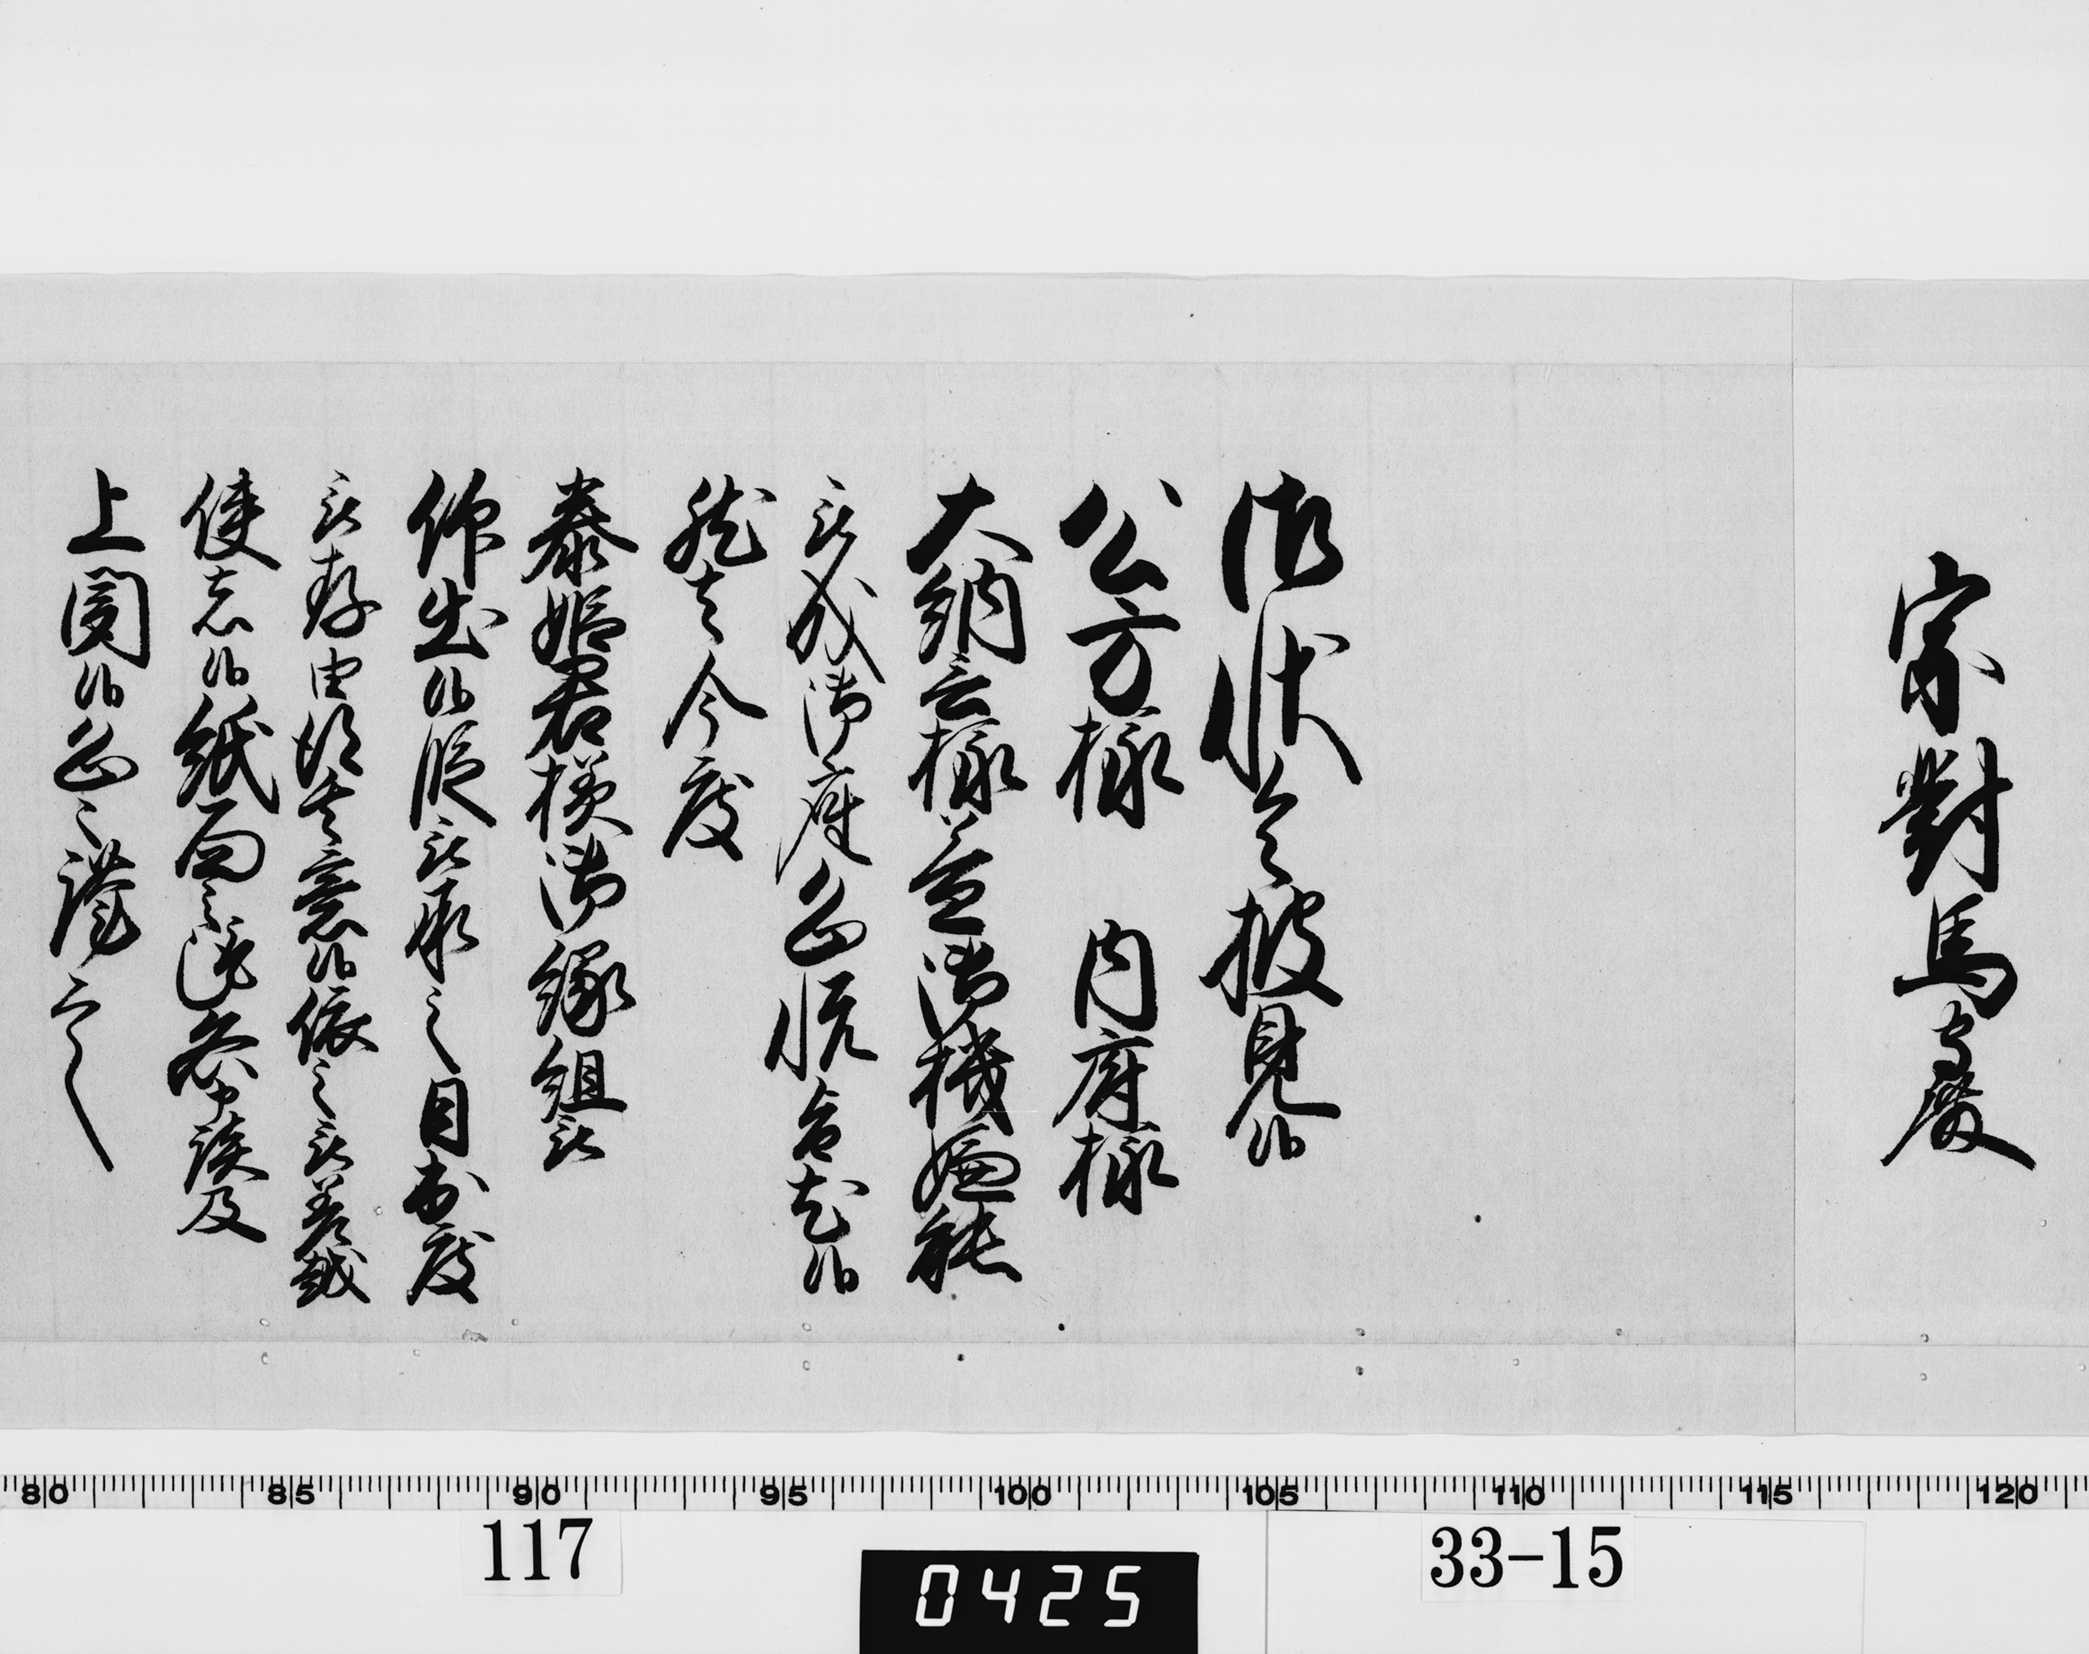 宗對馬守殿
御状令披見候
公方様　内府様
大納言様益御機嫌能
被成御座候恐悦旨尤候
然者今度
泰姫君様御縁組被
仰出候段被承之目出度
被存由得其意候依之被差越
使者候紙面之趣各申談及
上聞候恐々謹言
80 85 90 95 100 105 110 115 120
117
33-15
0425